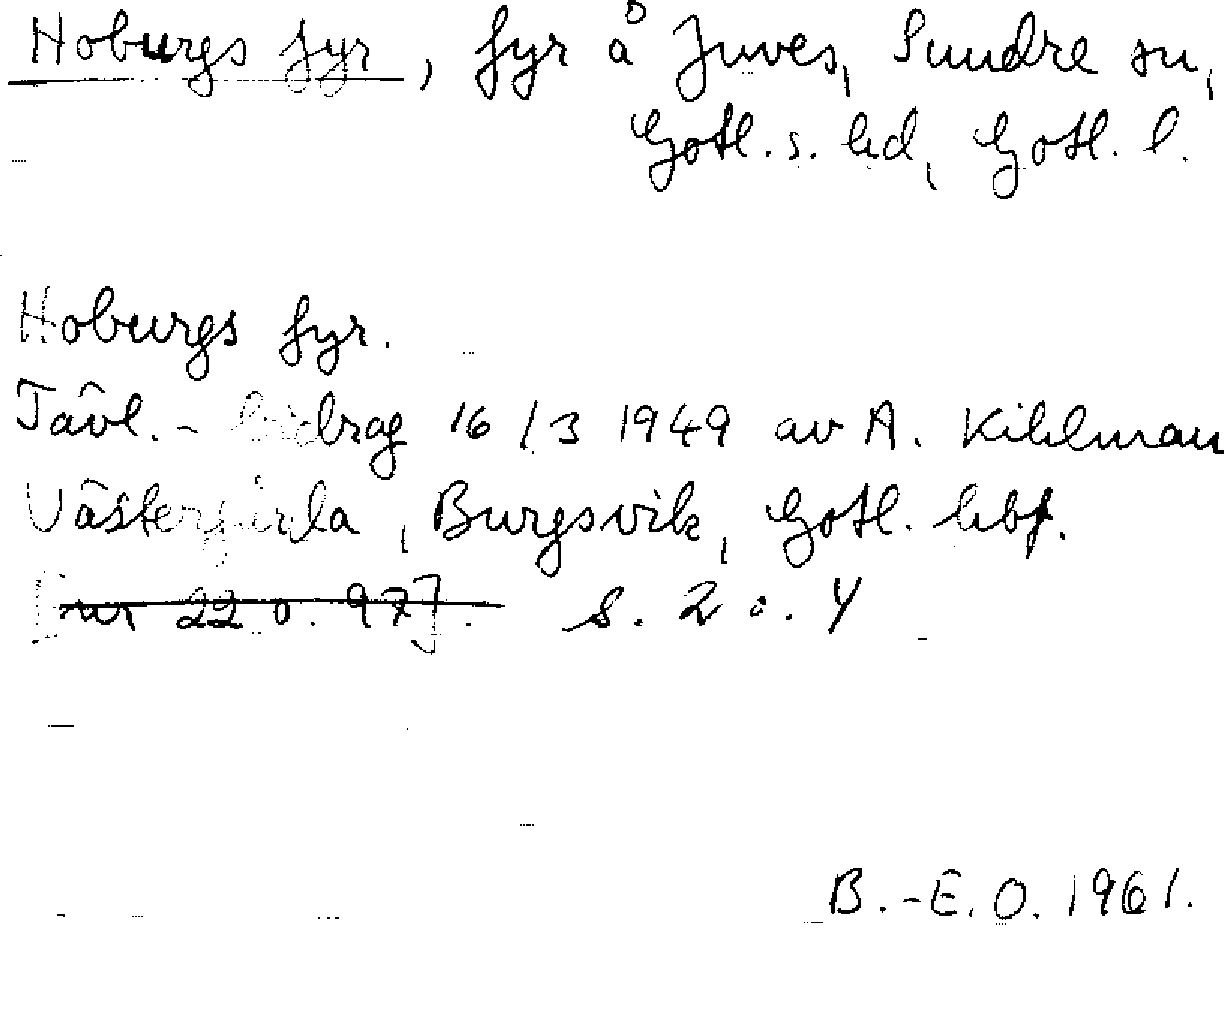 Hoburgs fyr, fyr å Juves, Sundre sn,
Gotl. s. hd, Gotl. l.
Hoburgs fyr.
Tävl.- bidrag 16/3 1949 av A. Kihlman
Västergårda, Burgsvik, Gotl. hbf.
[nr 22 o. 97]. s. 2 o. 4
B.-E. O. 1961.